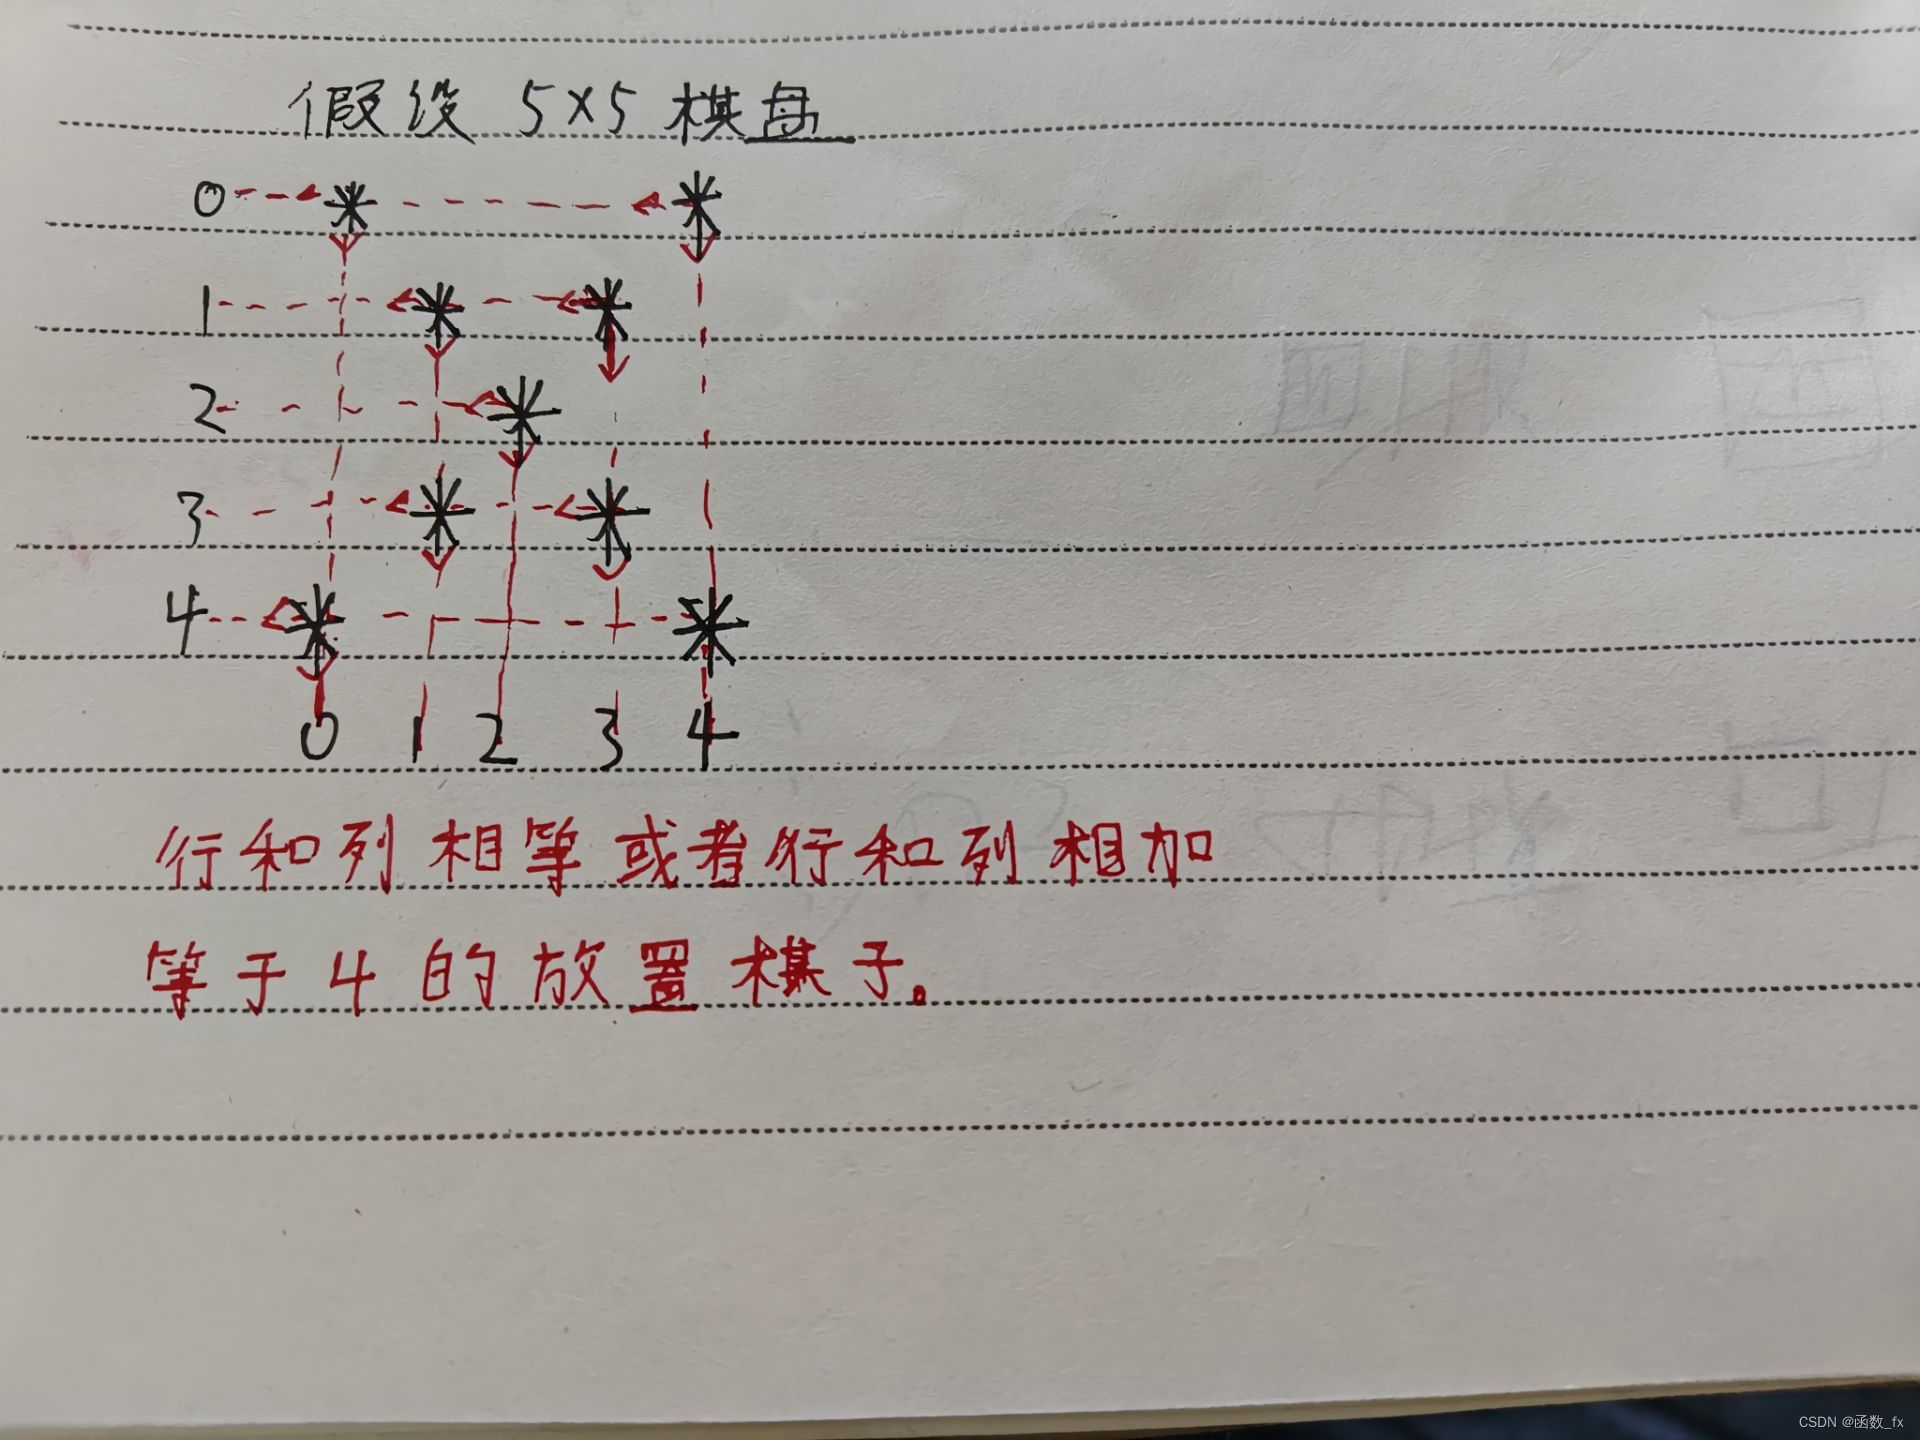 假设 5×5 棋盘
0 * *
1 * *
2 *
3 * *
4 * *
0 1 2 3 4
行和列相等或者行和列相加
等于4的放置棋子。
CSDN @函数_fx